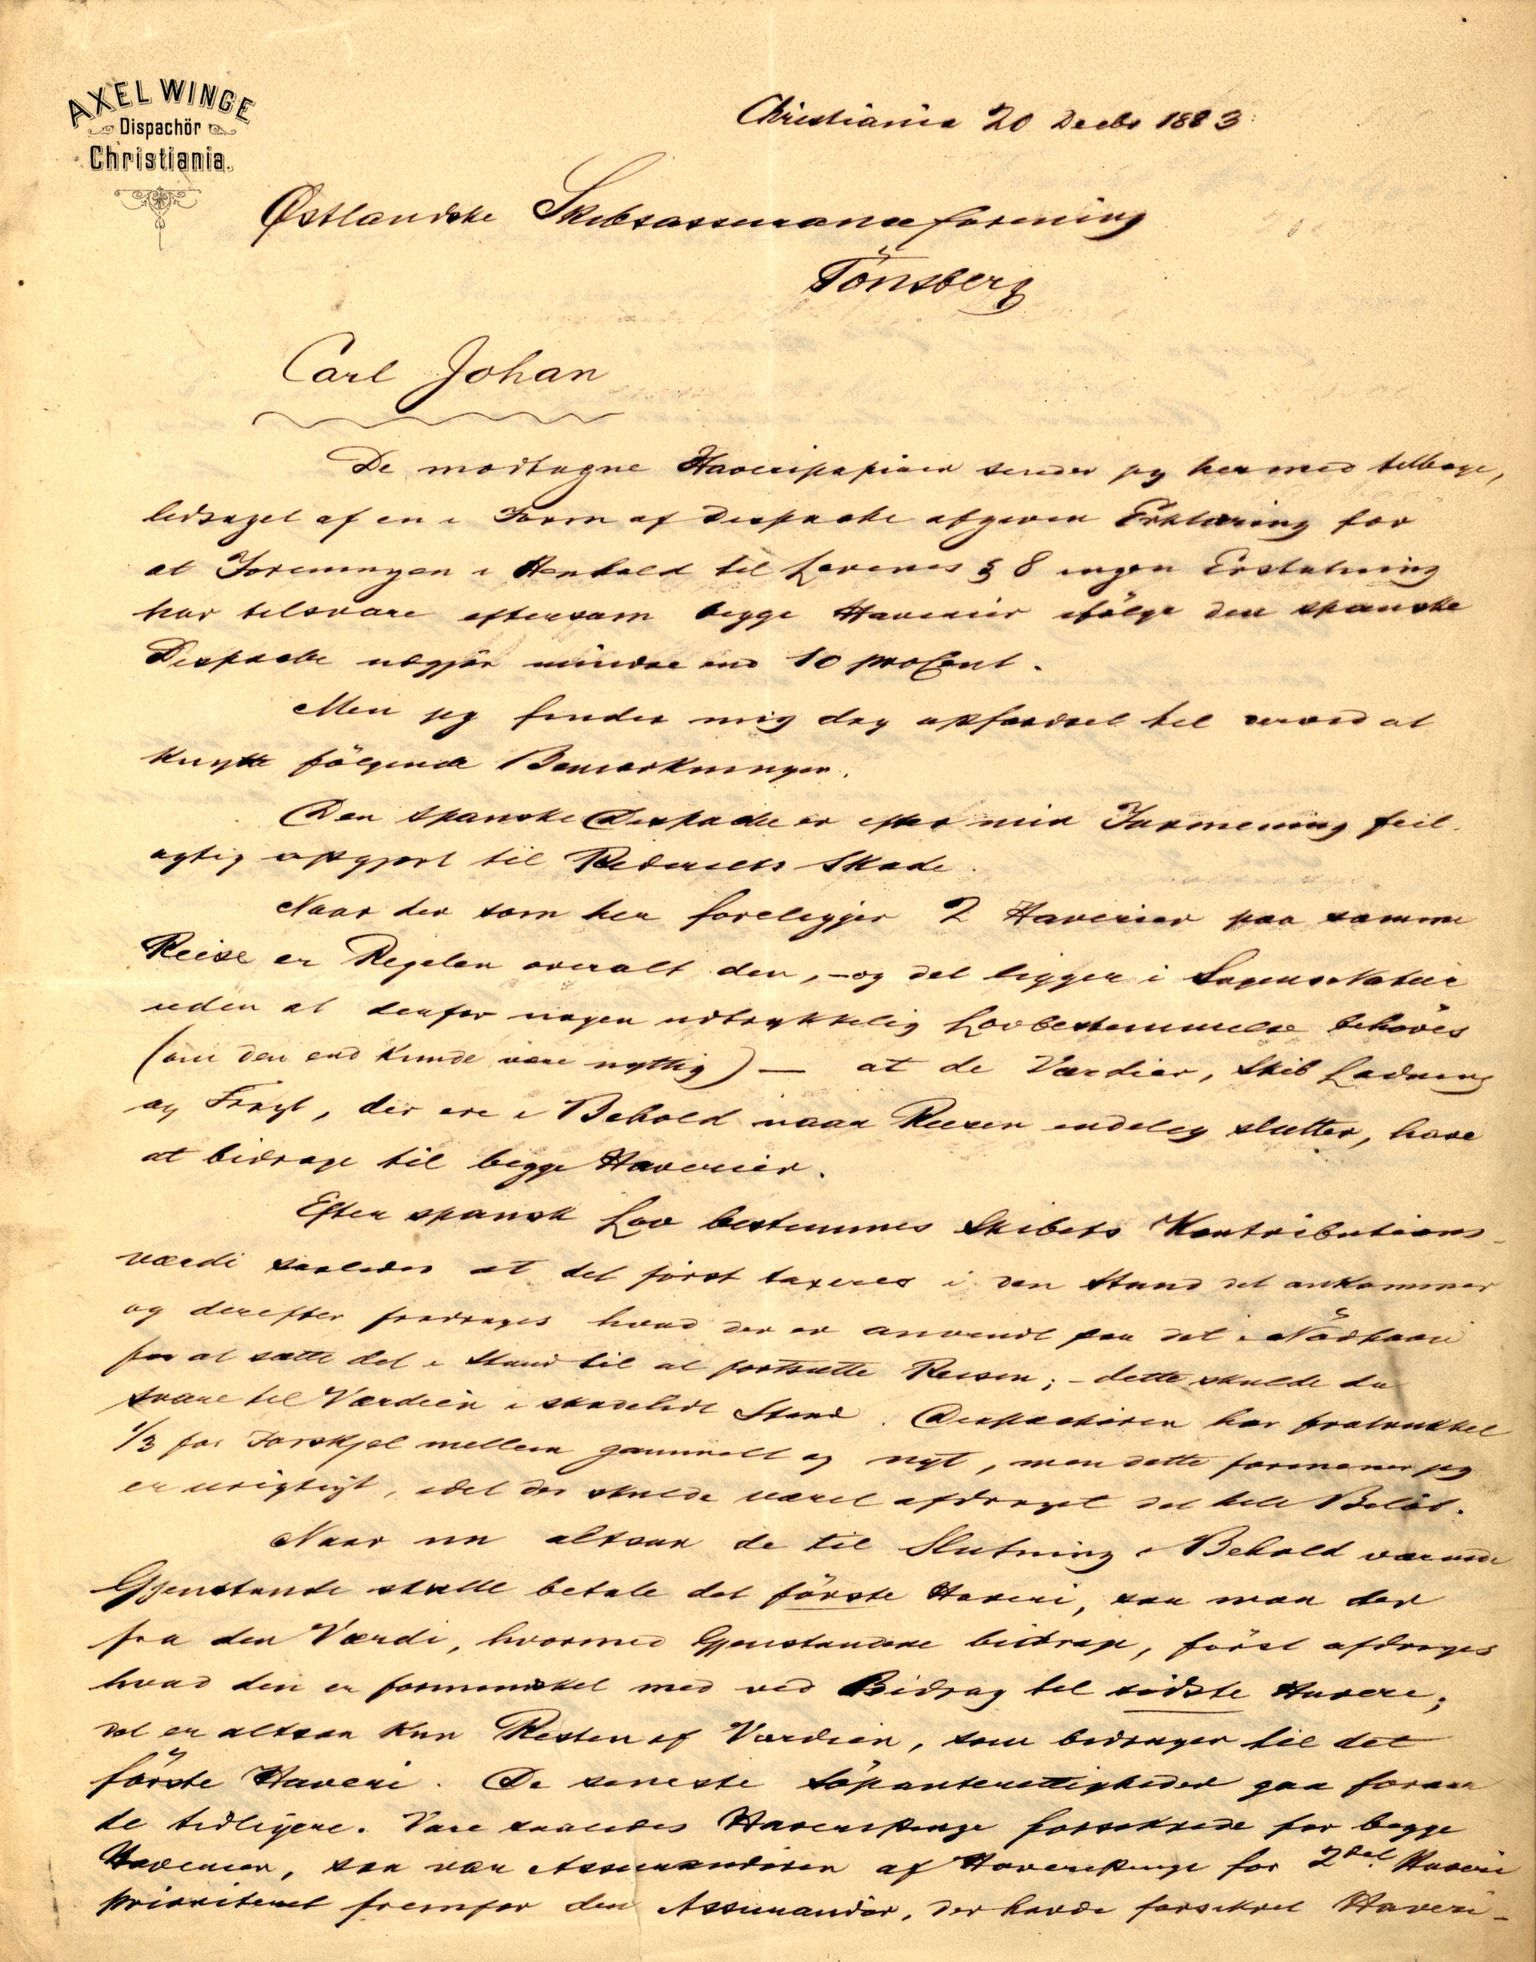 AXEL WINGE
Dispachör
Christiania.
Christiania 20 Decbr 1883
Østlandske Skibsassuranceforening
Tönsberg
Carl Johan
De modtagne Havaripapirer sender jeg hermed tilbage,
ledsaget af en i Form af Dispache afgiven Erklæring for
at Foreningen i Henhold til Lovenes § 8 ingen Erstatning
har tilsvare eftersom begge Havarier ifölge den spanske
Dispache udgjör mindre end 10 proCent.
Men jeg finder mig dog opfordret til derved at
knytte fölgende Bemærkninger.
Den spanske Dispache er efter min Formening feil-
agtig opgjort til Rederiets Skade.
Naar der som her foreligger 2 Havarier paa samme
Reise er Regelen overalt den, - og det ligger i Sagens Natur
uden at derfor nogen udtrykkelig Lovbestemmelse behöves
(om den end kunde være nyttig) — at de Værdier, Skib Ladning
og Fragt, der ere i Behold naar Reisen endelig slutter, have
at bidrage til begge Havarier.
Efter spansk Lov bestemmes Skibets Kontributions-
værdi saaledes at det först taxeres i den Stand det ankommer
og derefter fradrages hvad der er anvendt paa det i Nödhavn
for at sætte det i Stand til at fortsætte Reisen; - dette skulde da
svare til Værdien i skadelidt Stand. Dispachören har fratrukket
1/3 for Forskjel mellem gammelt og nyt, men dette formener jeg
er urigtigt, idet der skulde været afdraget det hele Belöb.
Naar nu altsaa de til Slutning i Behold værende
Gjenstande skulle betale det förste Havari, saa maa der
fra den Værdi, hvormed Gjenstandene bidrage, först afdrages
hvad den er formindsket med ved Bidrag til sidste Havari;
det er altsaa kun Resten af Værdien, som bidrager til det
förste Havari. De seneste Söpanterettigheder gaa foran
de tidligere. Vare saaledes Havaripenge forsikrede for begge
Havarier, saa var Assurandören af Havaripenge for 2det Havari
prioriteret fremfor den Assurandör, der havde forsikret Havari-